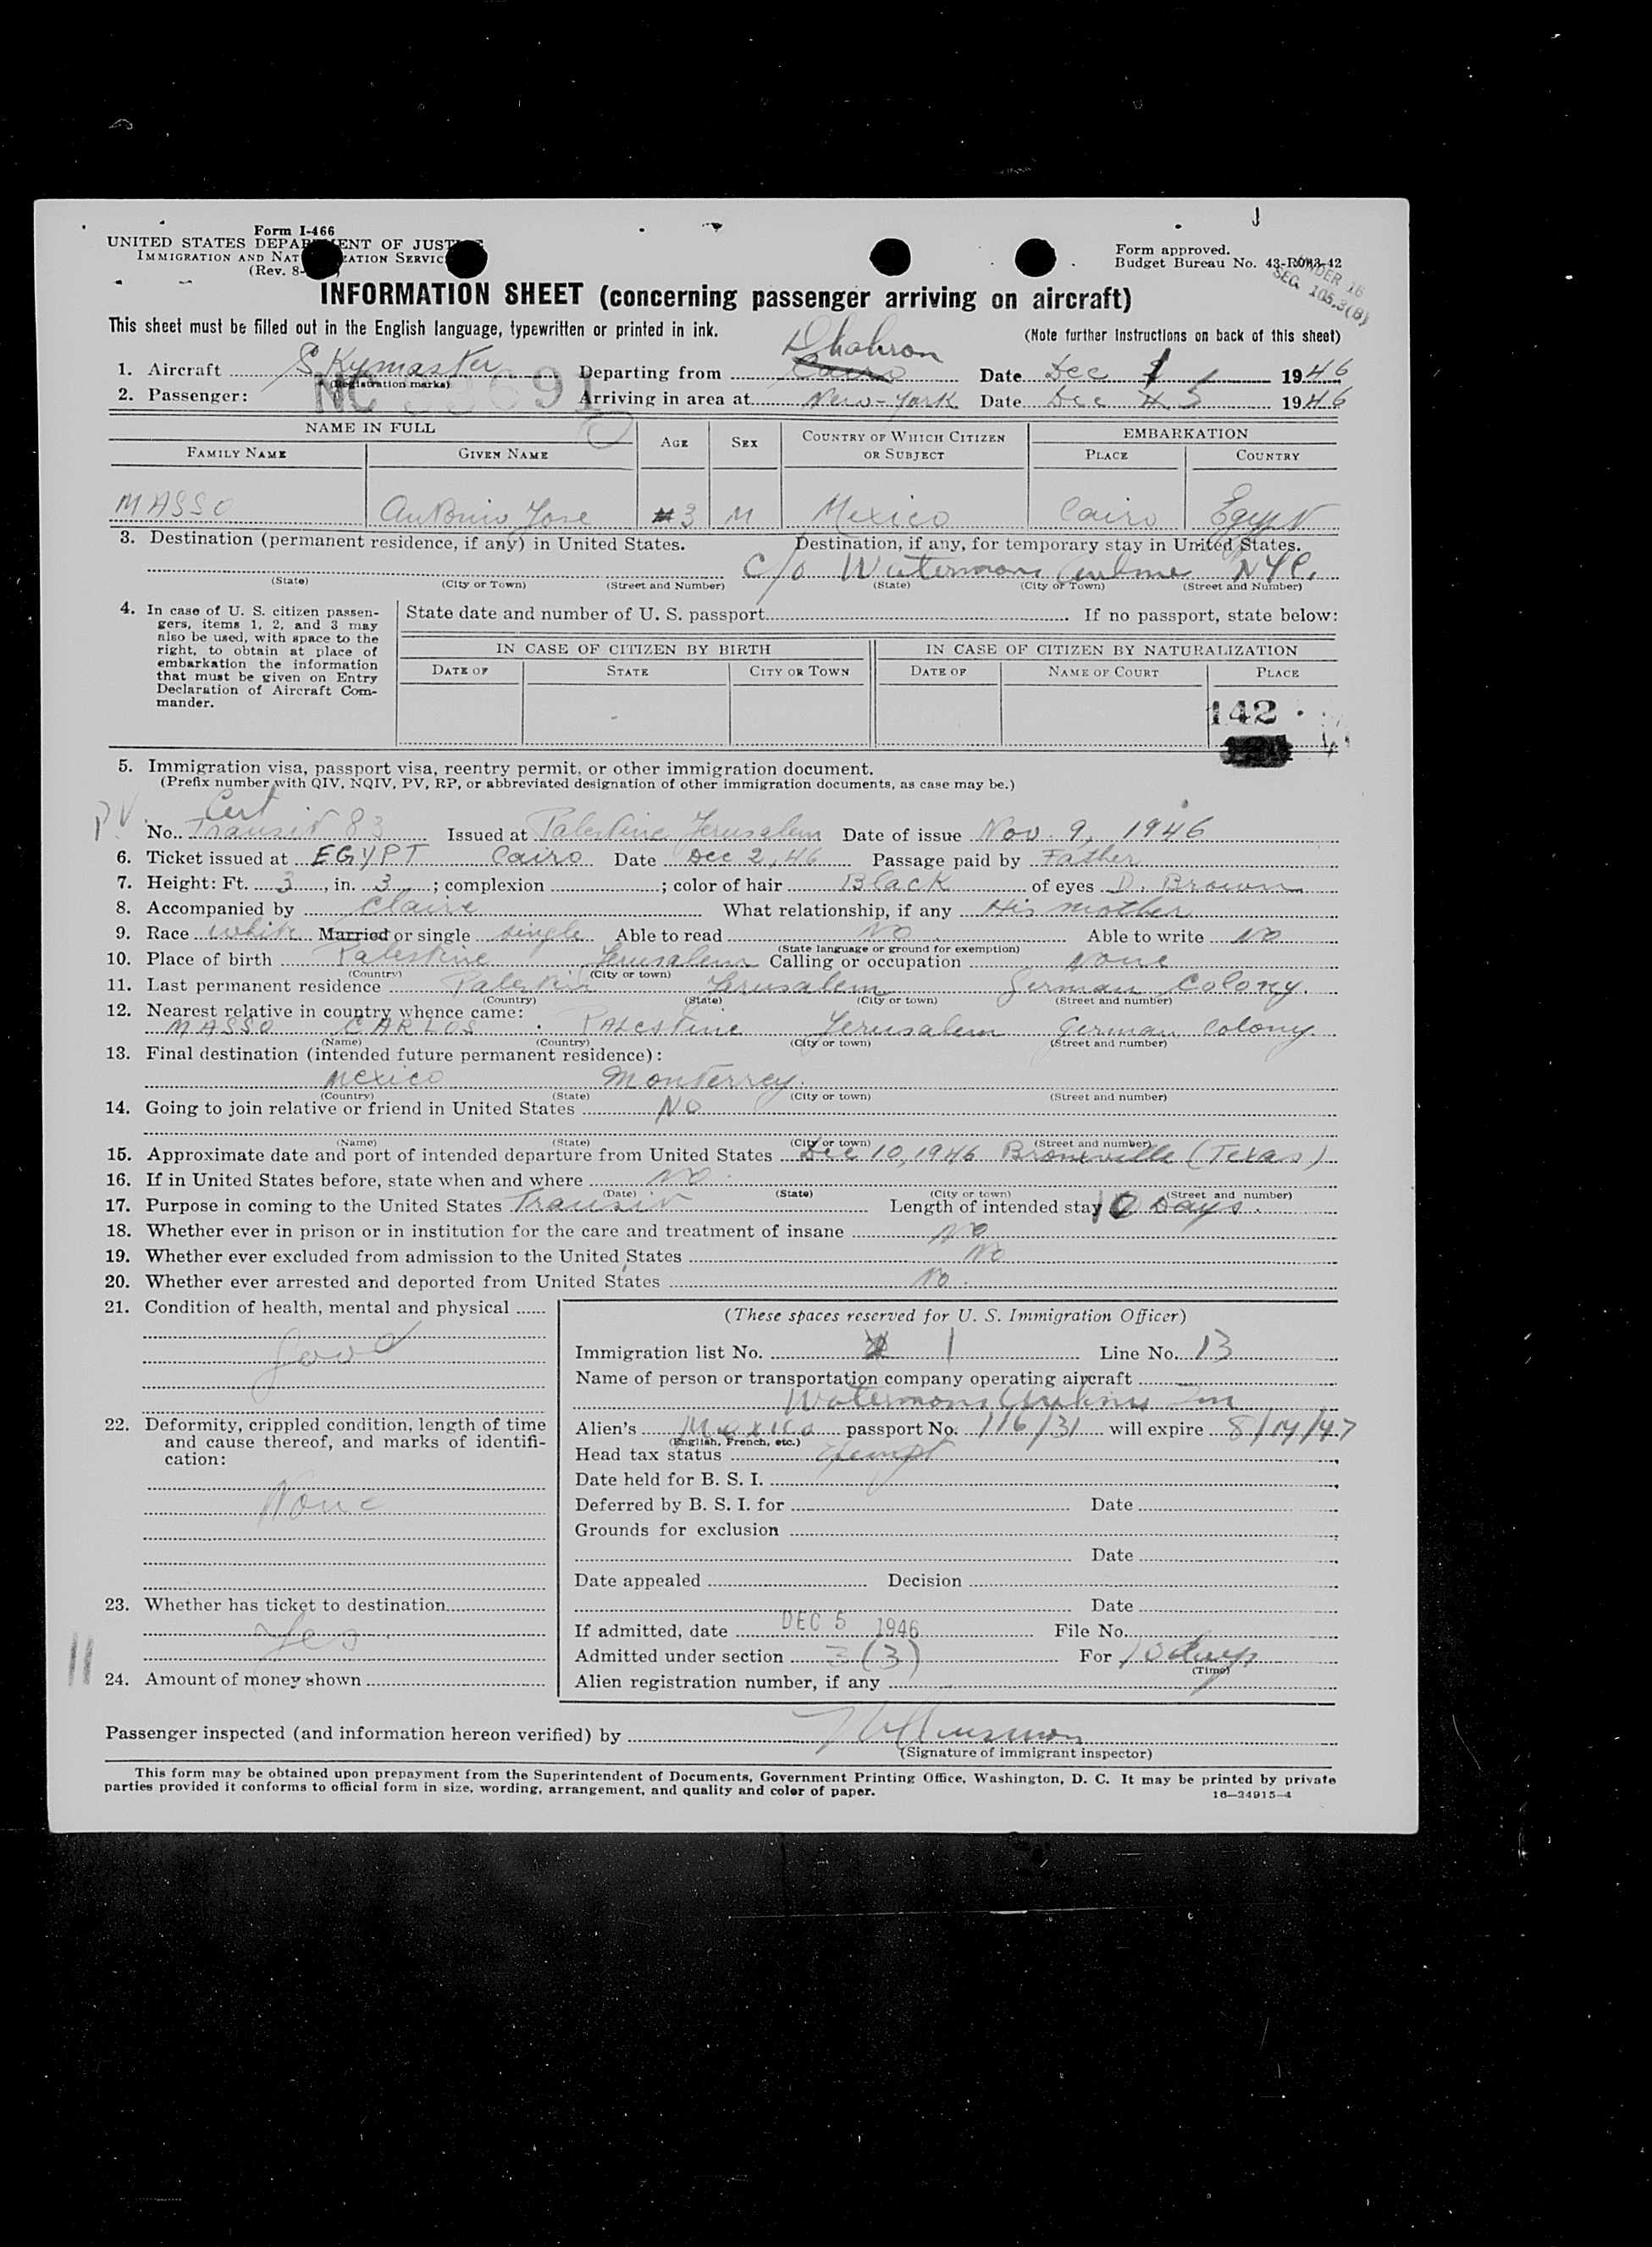 Form I-466
UNITED STATES DEPARTMENT OF JUSTICE
IMMIGRATION AND NATURALIZATION SERVICE
(Rev. 8-
Form approved.
Budget Bureau No.
UNDER 16
SEC. 105.3(B)
INFORMATION SHEET (concerning passenger arriving on aircraft)
This sheet must be filled out in the English language, typewritten or printed in ink. (Note further instructions on back of this sheet)
Dhahran
1. Aircraft Skymaster Departing from Cairo Date Dec 1946
(Registration marks)
NC 91
2. Passenger: Arriving in area at New-York Date Dec 5 1946
NAME IN FULL AGE SEX COUNTRY OF WHICH CITIZEN OR SUBJECT EMBARKATION
FAMILY NAME GIVEN NAME PLACE COUNTRY
MASSO Antonio Jose 3 M Mexico Cairo Egypt
3. Destination (permanent residence, if any) in United States. Destination, if any, for temporary stay in United States.
C/o Waterman Airline NYC.
(State) (City or Town) (Street and Number) (State) (City or Town) (Street and Number)
4. In case of U. S. citizen passengers, items 1, 2, and 3 may also be used, with space to the right, to obtain at place of embarkation the information that must be given on Entry Declaration of Aircraft Commander.
State date and number of U. S. passport If no passport, state below:
IN CASE OF CITIZEN BY BIRTH IN CASE OF CITIZEN BY NATURALIZATION
DATE OF STATE CITY OR TOWN DATE OF NAME OF COURT PLACE
142
5. Immigration visa, passport visa, reentry permit, or other immigration document.
(Prefix number with QIV, NQIV, PV, RP, or abbreviated designation of other immigration documents, as case may be.)
PV. Cert
No. Transit 83 Issued at Palestine Jerusalem Date of issue Nov. 9, 1946
6. Ticket issued at EGYPT Cairo Date Dec 2, 46 Passage paid by Father
7. Height: Ft. 3, in. 3; complexion ; color of hair Black of eyes D. Brown
8. Accompanied by Claire What relationship, if any His mother
9. Race white Married or single single Able to read No Able to write No
(State language or ground for exemption)
10. Place of birth Palestine Jerusalem Calling or occupation None
(Country) (City or town)
11. Last permanent residence Palestine Jerusalem German Colony.
(Country) (State) (City or town) (Street and number)
12. Nearest relative in country whence came:
MASSO CARLOS. Palestine Jerusalem German Colony
(Name) (Country) (City or town) (Street and number)
13. Final destination (intended future permanent residence):
Mexico Monterrey.
(Country) (State) (City or town) (Street and number)
14. Going to join relative or friend in United States No
(Name) (State) (City or town) (Street and number)
15. Approximate date and port of intended departure from United States Dec 10, 1946 Bronsville (Texas)
16. If in United States before, state when and where No
(Date) (State) (City or town) (Street and number)
17. Purpose in coming to the United States Transit Length of intended stay 10 Days.
18. Whether ever in prison or in institution for the care and treatment of insane No
19. Whether ever excluded from admission to the United States No
20. Whether ever arrested and deported from United States No.
21. Condition of health, mental and physical
Good
22. Deformity, crippled condition, length of time and cause thereof, and marks of identification:
None
23. Whether has ticket to destination
Yes
24. Amount of money shown
(These spaces reserved for U. S. Immigration Officer)
Immigration list No. 1 Line No. 13
Name of person or transportation company operating aircraft
Waterman Airlines Inc
Alien's Mexico passport No. 116/31 will expire 8/14/47
(English, French, etc.)
Head tax status exempt
Date held for B. S. I.
Deferred by B. S. I. for Date
Grounds for exclusion
Date
Date appealed Decision
Date
If admitted, date DEC 5 1946 File No.
Admitted under section 3(3) For 10 days
(Time)
Alien registration number, if any
Passenger inspected (and information hereon verified) by
(Signature of immigrant inspector)
This form may be obtained upon prepayment from the Superintendent of Documents, Government Printing Office, Washington, D. C. It may be printed by private
parties provided it conforms to official form in size, wording, arrangement, and quality and color of paper.
16—24915-4